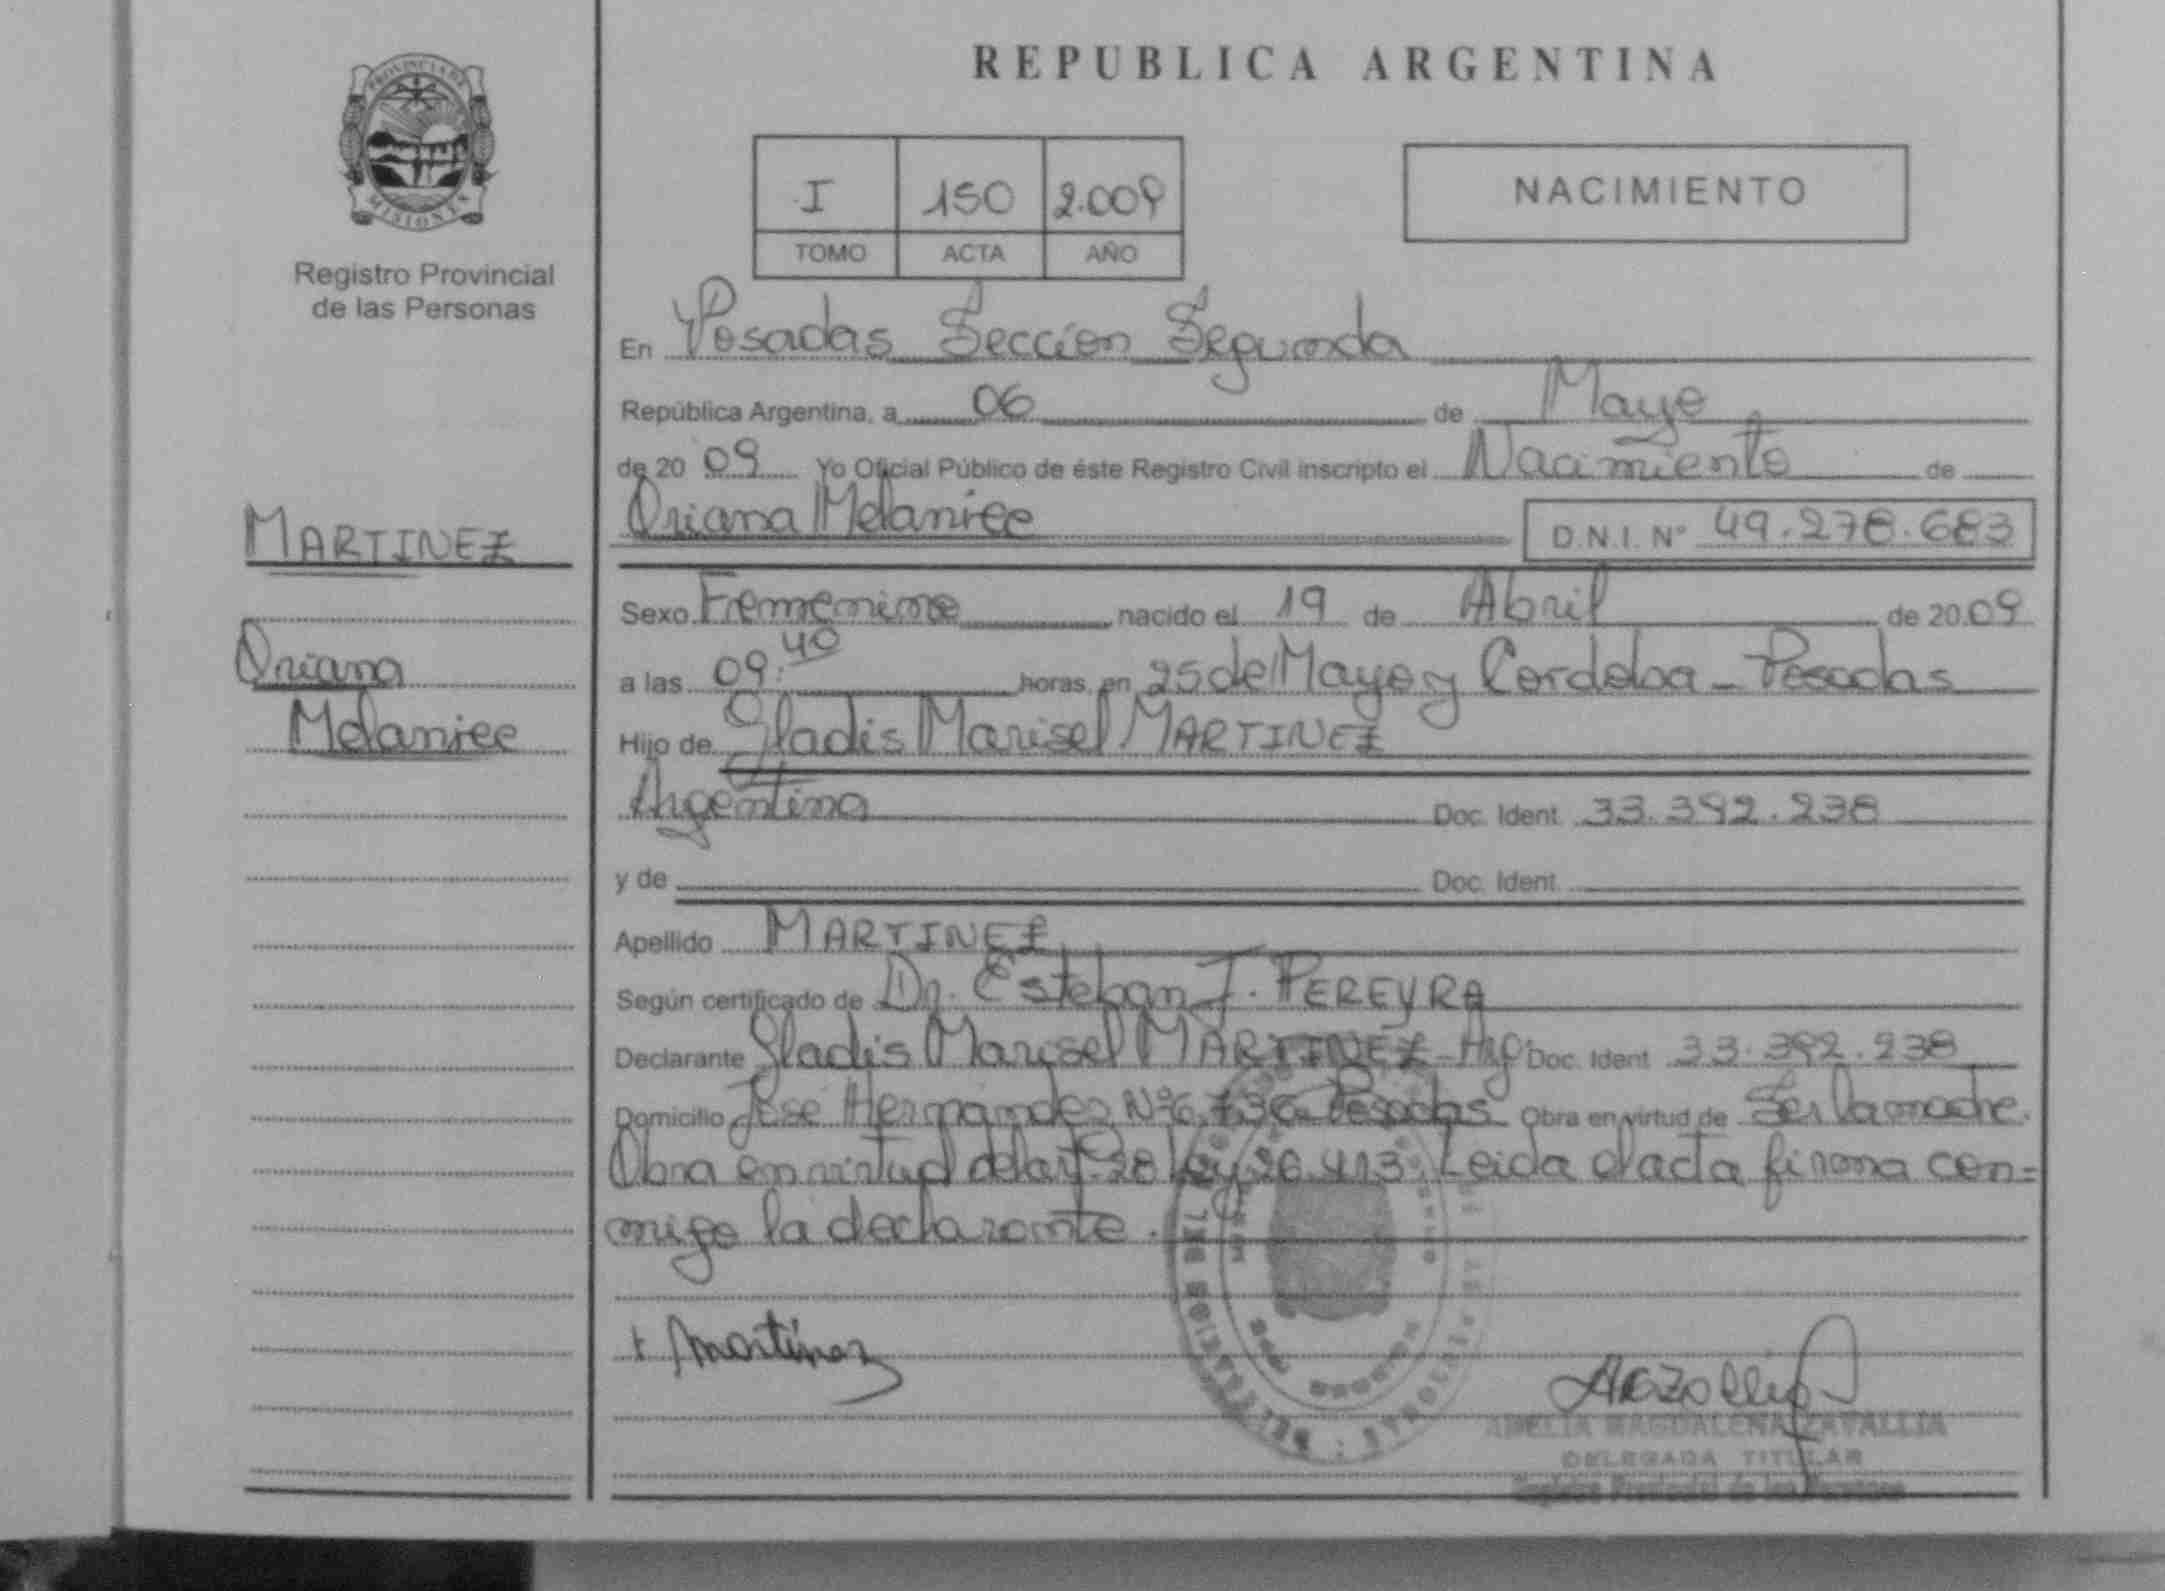 REPUBLICA ARGENTINA
PROVINCIA DE
MISIONES
Registro Provincial
de las Personas
I 150 2.009
TOMO ACTA AÑO
NACIMIENTO
MARTINEZ
Oriana
Melaniee
En Posadas Sección Segunda
República Argentina, a 06 de Mayo
de 20 09 Yo Oficial Público de éste Registro Civil inscripto el Nacimiento de
Oriana Melaniee D.N.I. Nº 49.278.683
Sexo Femenino nacido el 19 de Abril de 20 09
a las 09:40 horas, en 25 de Mayo y Cordoba - Posadas
Hijo de Gladis Marisel MARTINEZ
Argentina Doc. Ident. 33.392.238
y de Doc. Ident.
Apellido MARTINEZ
Según certificado de Dr. Esteban J. PEREYRA
Declarante Gladis Marisel MARTINEZ - Arg. Doc. Ident. 33.392.238
Domicilio Jose Hernandez Nº 6.736 - Posadas Obra en virtud de Ser la madre.
Obra en virtud del art. 28 Ley 26.413. Leida el acta firma con=
migo la declarante.
Martinez
AMELIA MAGDALENA ZAVALLIA
DELEGADA TITULAR
Registro Provincial de las Personas